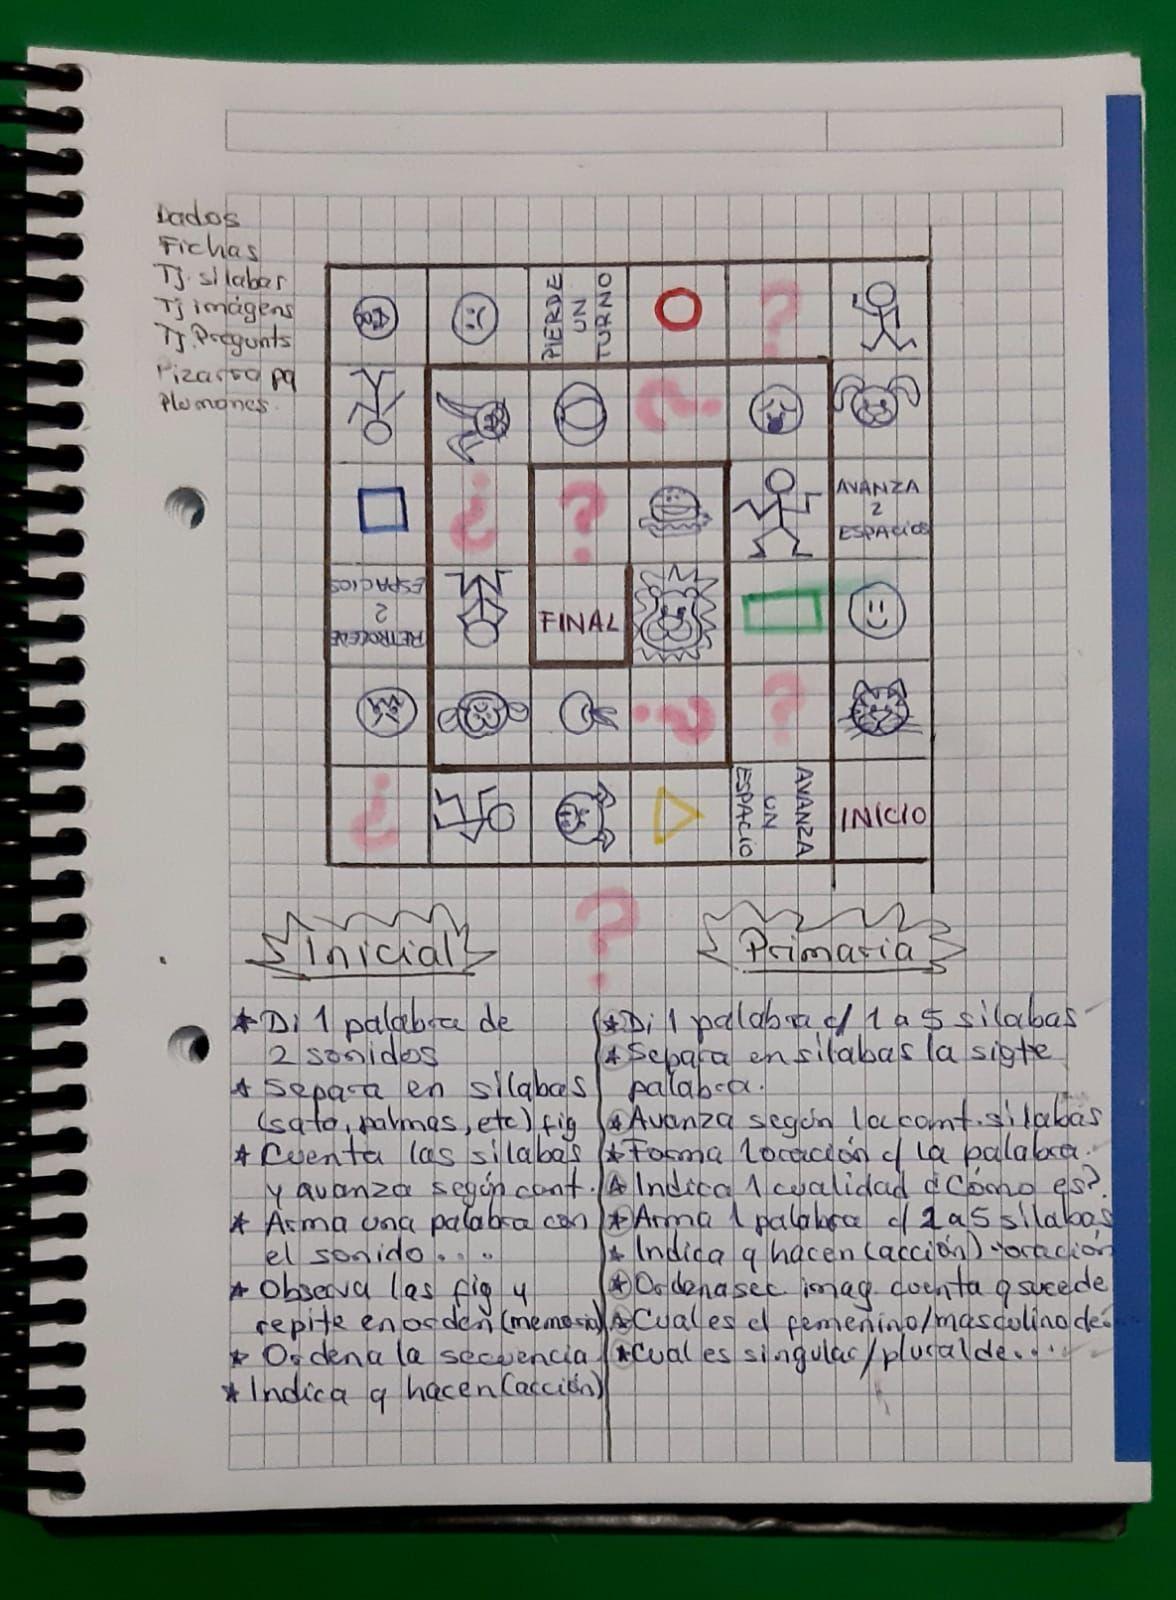 Dados
Fichas
Tj. silabas
Tj imágens
Tj. Pregunts
Pizarra pq
Plumones.
PIERDE
UN
TURNO
?
?
AVANZA
2
ESPACIOS
?
?
RETROCEDE
2
ESPACIOS
FINAL
?
?
?
AVANZA
UN
ESPACIO
INICIO
?
Inicial
* Di 1 palabra de
2 sonidos
* Separa en silabas
(salta, palmas, etc) fig
* Cuenta las silabas
y avanza según cant.
* Arma una palabra con
el sonido....
* Observa las fig y
repite en orden (memoria)
* Ordena la secuencia
* Indica q hacen (acción)
Primaria
* Di 1 palabra c/ 1 a 5 silabas
* Separa en silabas la sigte
palabra.
* Avanza según la cant. silabas
* Forma 1 oración c/ la palabra.
* Indica 1 cualidad ¿Cómo es?
* Arma 1 palabra c/ 2 a 5 silabas
* Indica q hacen (acción) - oración
* Ordena sec imag cuenta q sucede
* Cual es el femenino/masculino de..
* Cual es singular/plural de....